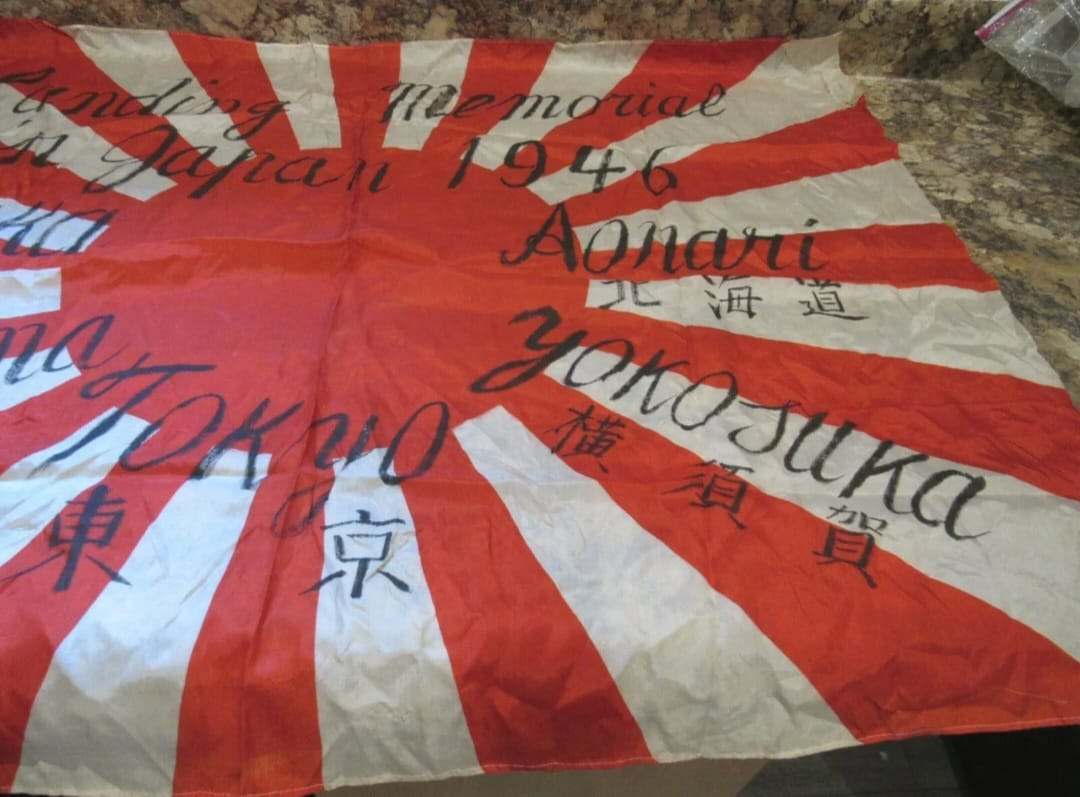 Landing Memorial
in Japan 1946
Aonari
北海道
Yokosuka
横須賀
Tokyo
東京